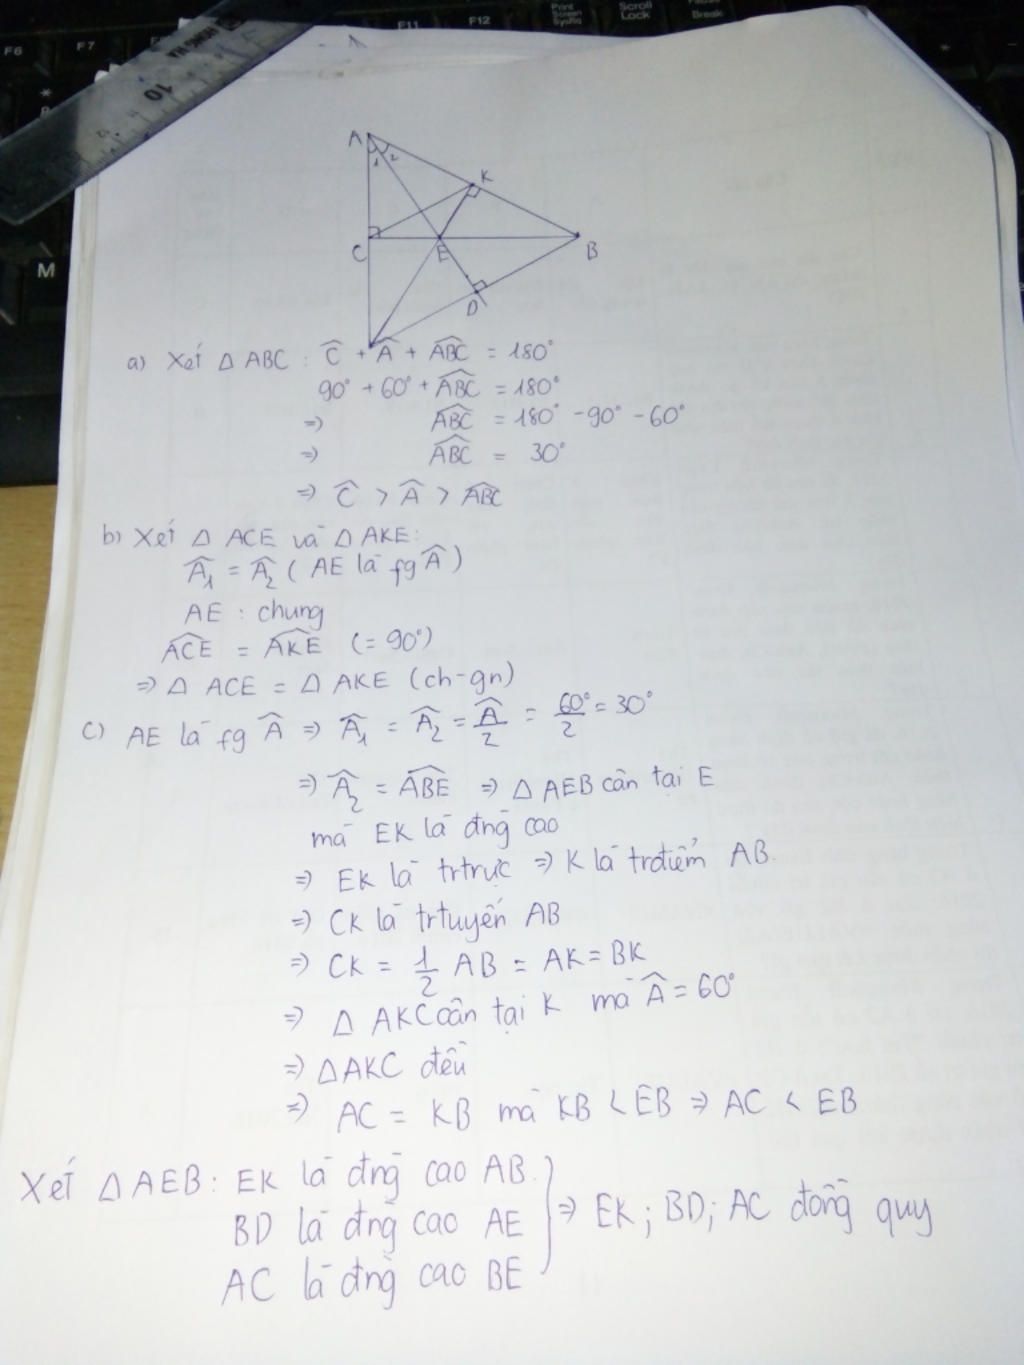 F6
F7
F11
F12
Print
Screen
SysRq
Scroll
Lock
Pause
Break
M
10
A
1
2
K
C
E
B
D
a) Xét Δ ABC : Ĉ + Â + \widehat{ABC} = 180°
90° + 60° + \widehat{ABC} = 180°
=> \widehat{ABC} = 180° - 90° - 60°
=> \widehat{ABC} = 30°
=> Ĉ > Â > \widehat{ABC}
b) Xét Δ ACE và Δ AKE:
Â₁ = Â₂ ( AE là fg Â )
AE : chung
\widehat{ACE} = \widehat{AKE} (= 90°)
=> Δ ACE = Δ AKE (ch-gn)
c) AE là fg  => Â₁ = Â₂ = Â/2 = 60°/2 = 30°
=> Â₂ = \widehat{ABE} => Δ AEB cân tại E
mà EK là đng̃ cao
=> EK là trtrực => K là trđiểm AB.
=> CK là trtuyến AB
=> CK = 1/2 AB = AK = BK
=> Δ AKC cân tại K mà  = 60°
=> Δ AKC đều
=> AC = KB mà KB < EB => AC < EB
Xét Δ AEB: EK là đng̃ cao AB.
BD là đng̃ cao AE } => EK; BD; AC đồng quy
AC là đng̃ cao BE